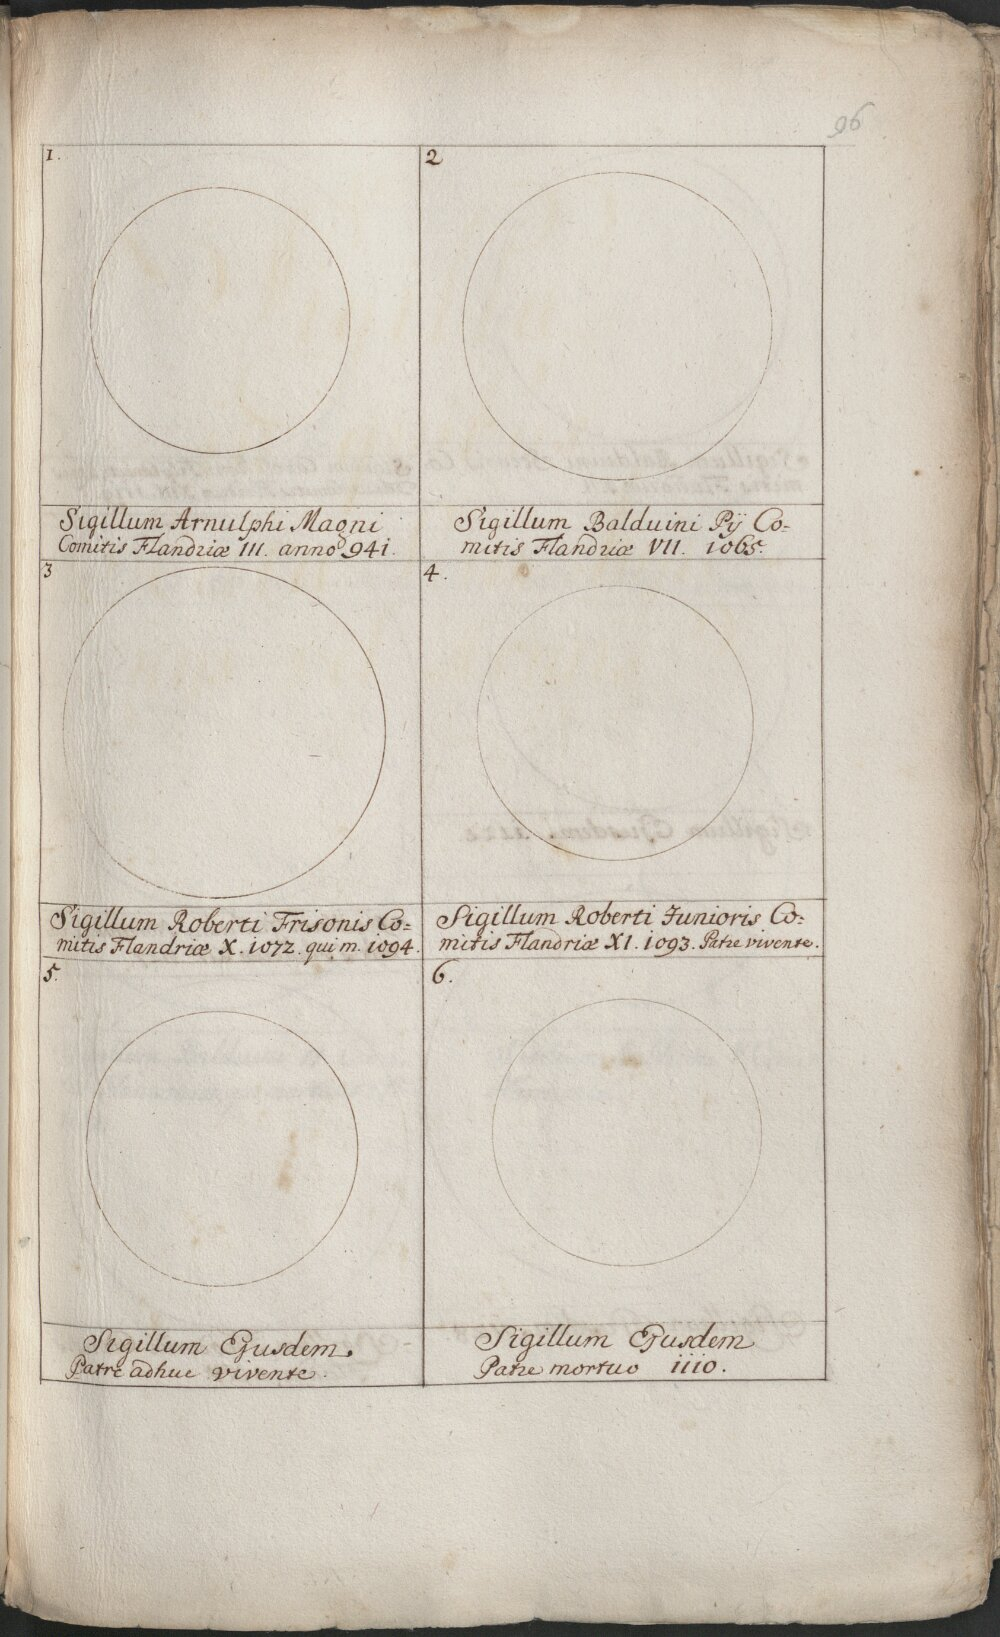 96
1.
2
Sigillum Arnulphi Magni
Comitis Flandriæ III. anno 941.
Sigillum Balduini Pÿ Co=
mitis Flandriæ VII. 1065.
3
4.
Sigillum Roberti Frisonis Co=
mitis Flandriæ X. 1072. qui m. 1094.
Sigillum Roberti Junioris Co=
mitis Flandriæ XI. 1093. Patre vivente.
5.
6.
Sigillum Ejusdem.
Patre adhuc vivente.
Sigillum Ejusdem
Patre mortuo 1110.